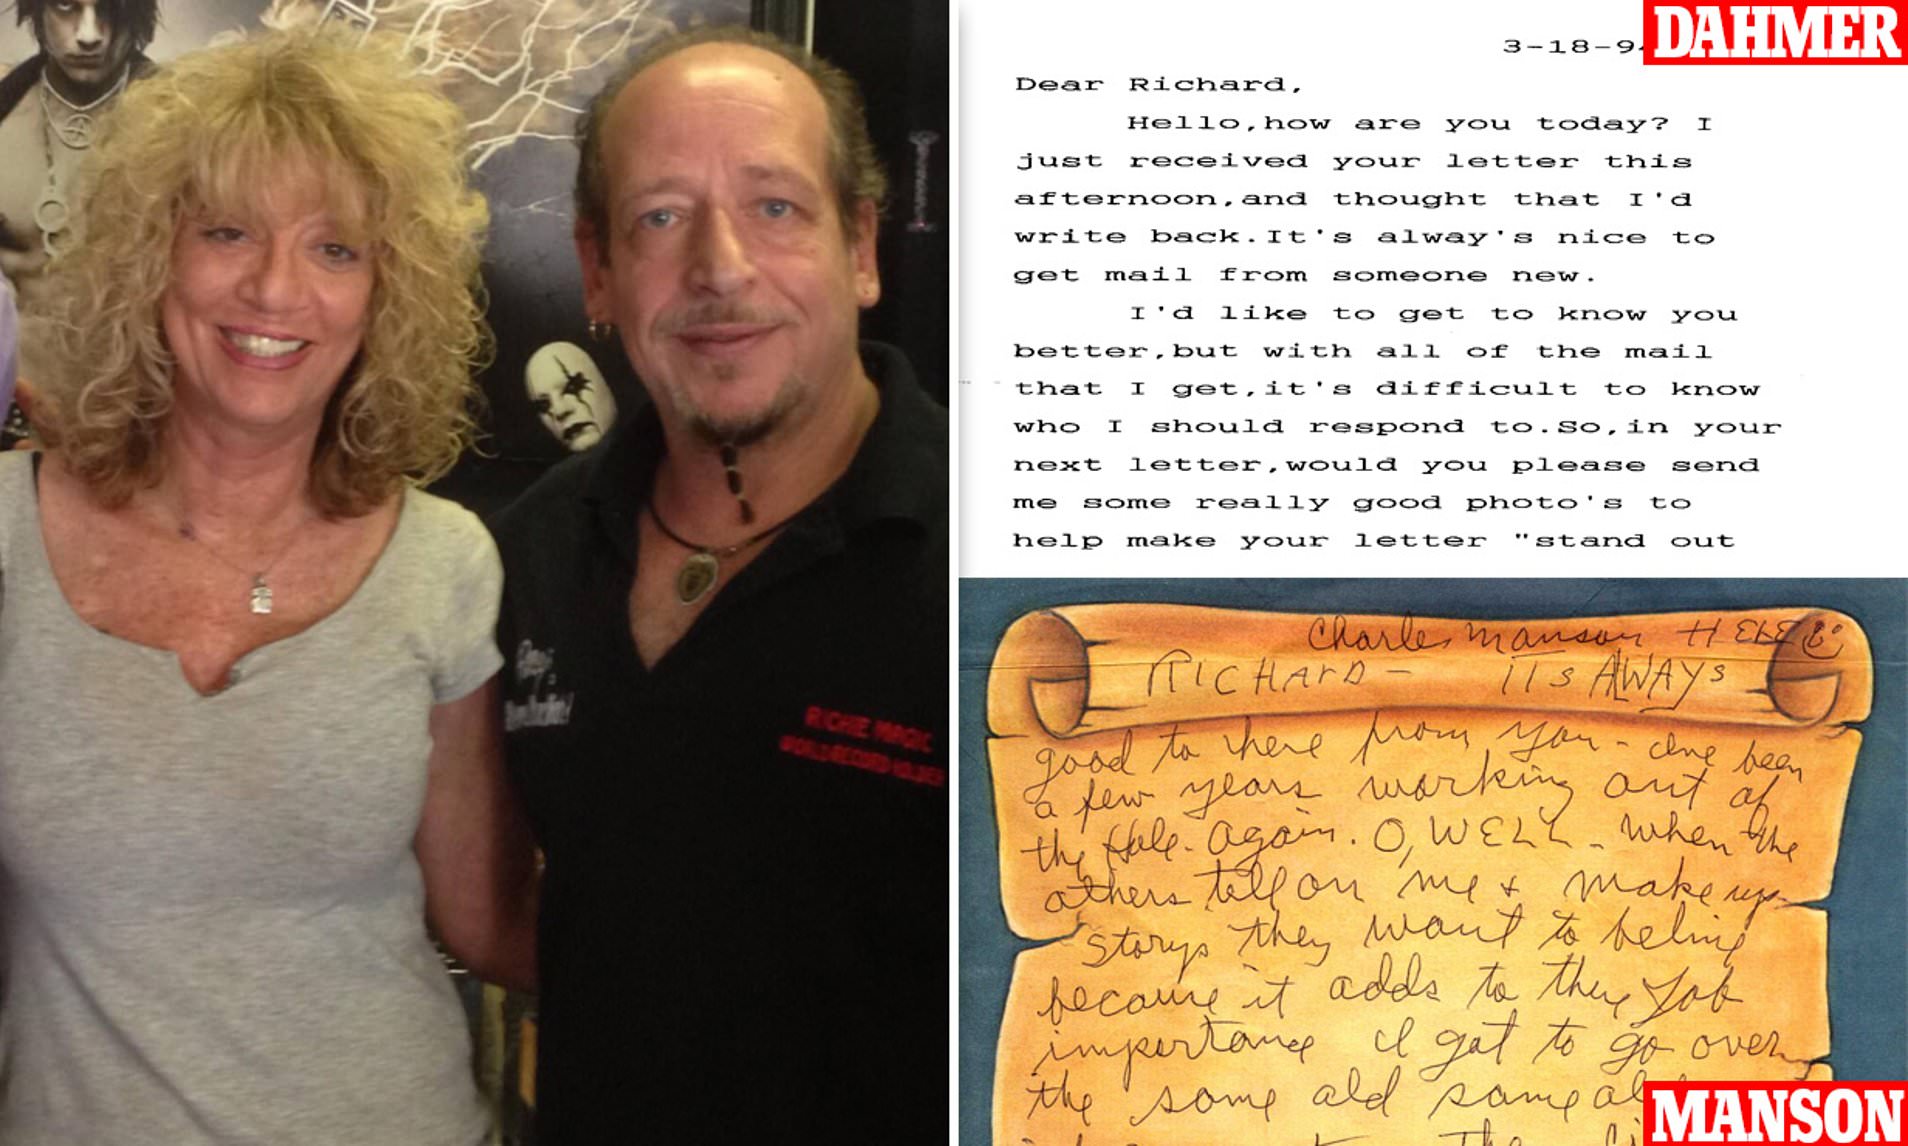 RICHIE MAGIC
WORLD RECORD HOLDER
DAHMER
3-18-9
Dear Richard,
Hello,how are you today? I
just received your letter this
afternoon,and thought that I'd
write back.It's alway's nice to
get mail from someone new.
I'd like to get to know you
better,but with all of the mail
that I get,it's difficult to know
who I should respond to.So,in your
next letter,would you please send
me some really good photo's to
help make your letter "stand out
Charles Manson HERE
RICHARD - ITs AlWAYs
good to here from you - been
a few years working out of
the Hole. Again. O, WELL - when the
others tell on me + make up
storys they want to
because it adds to Job
importance I got to go over
the same old same
MANSON